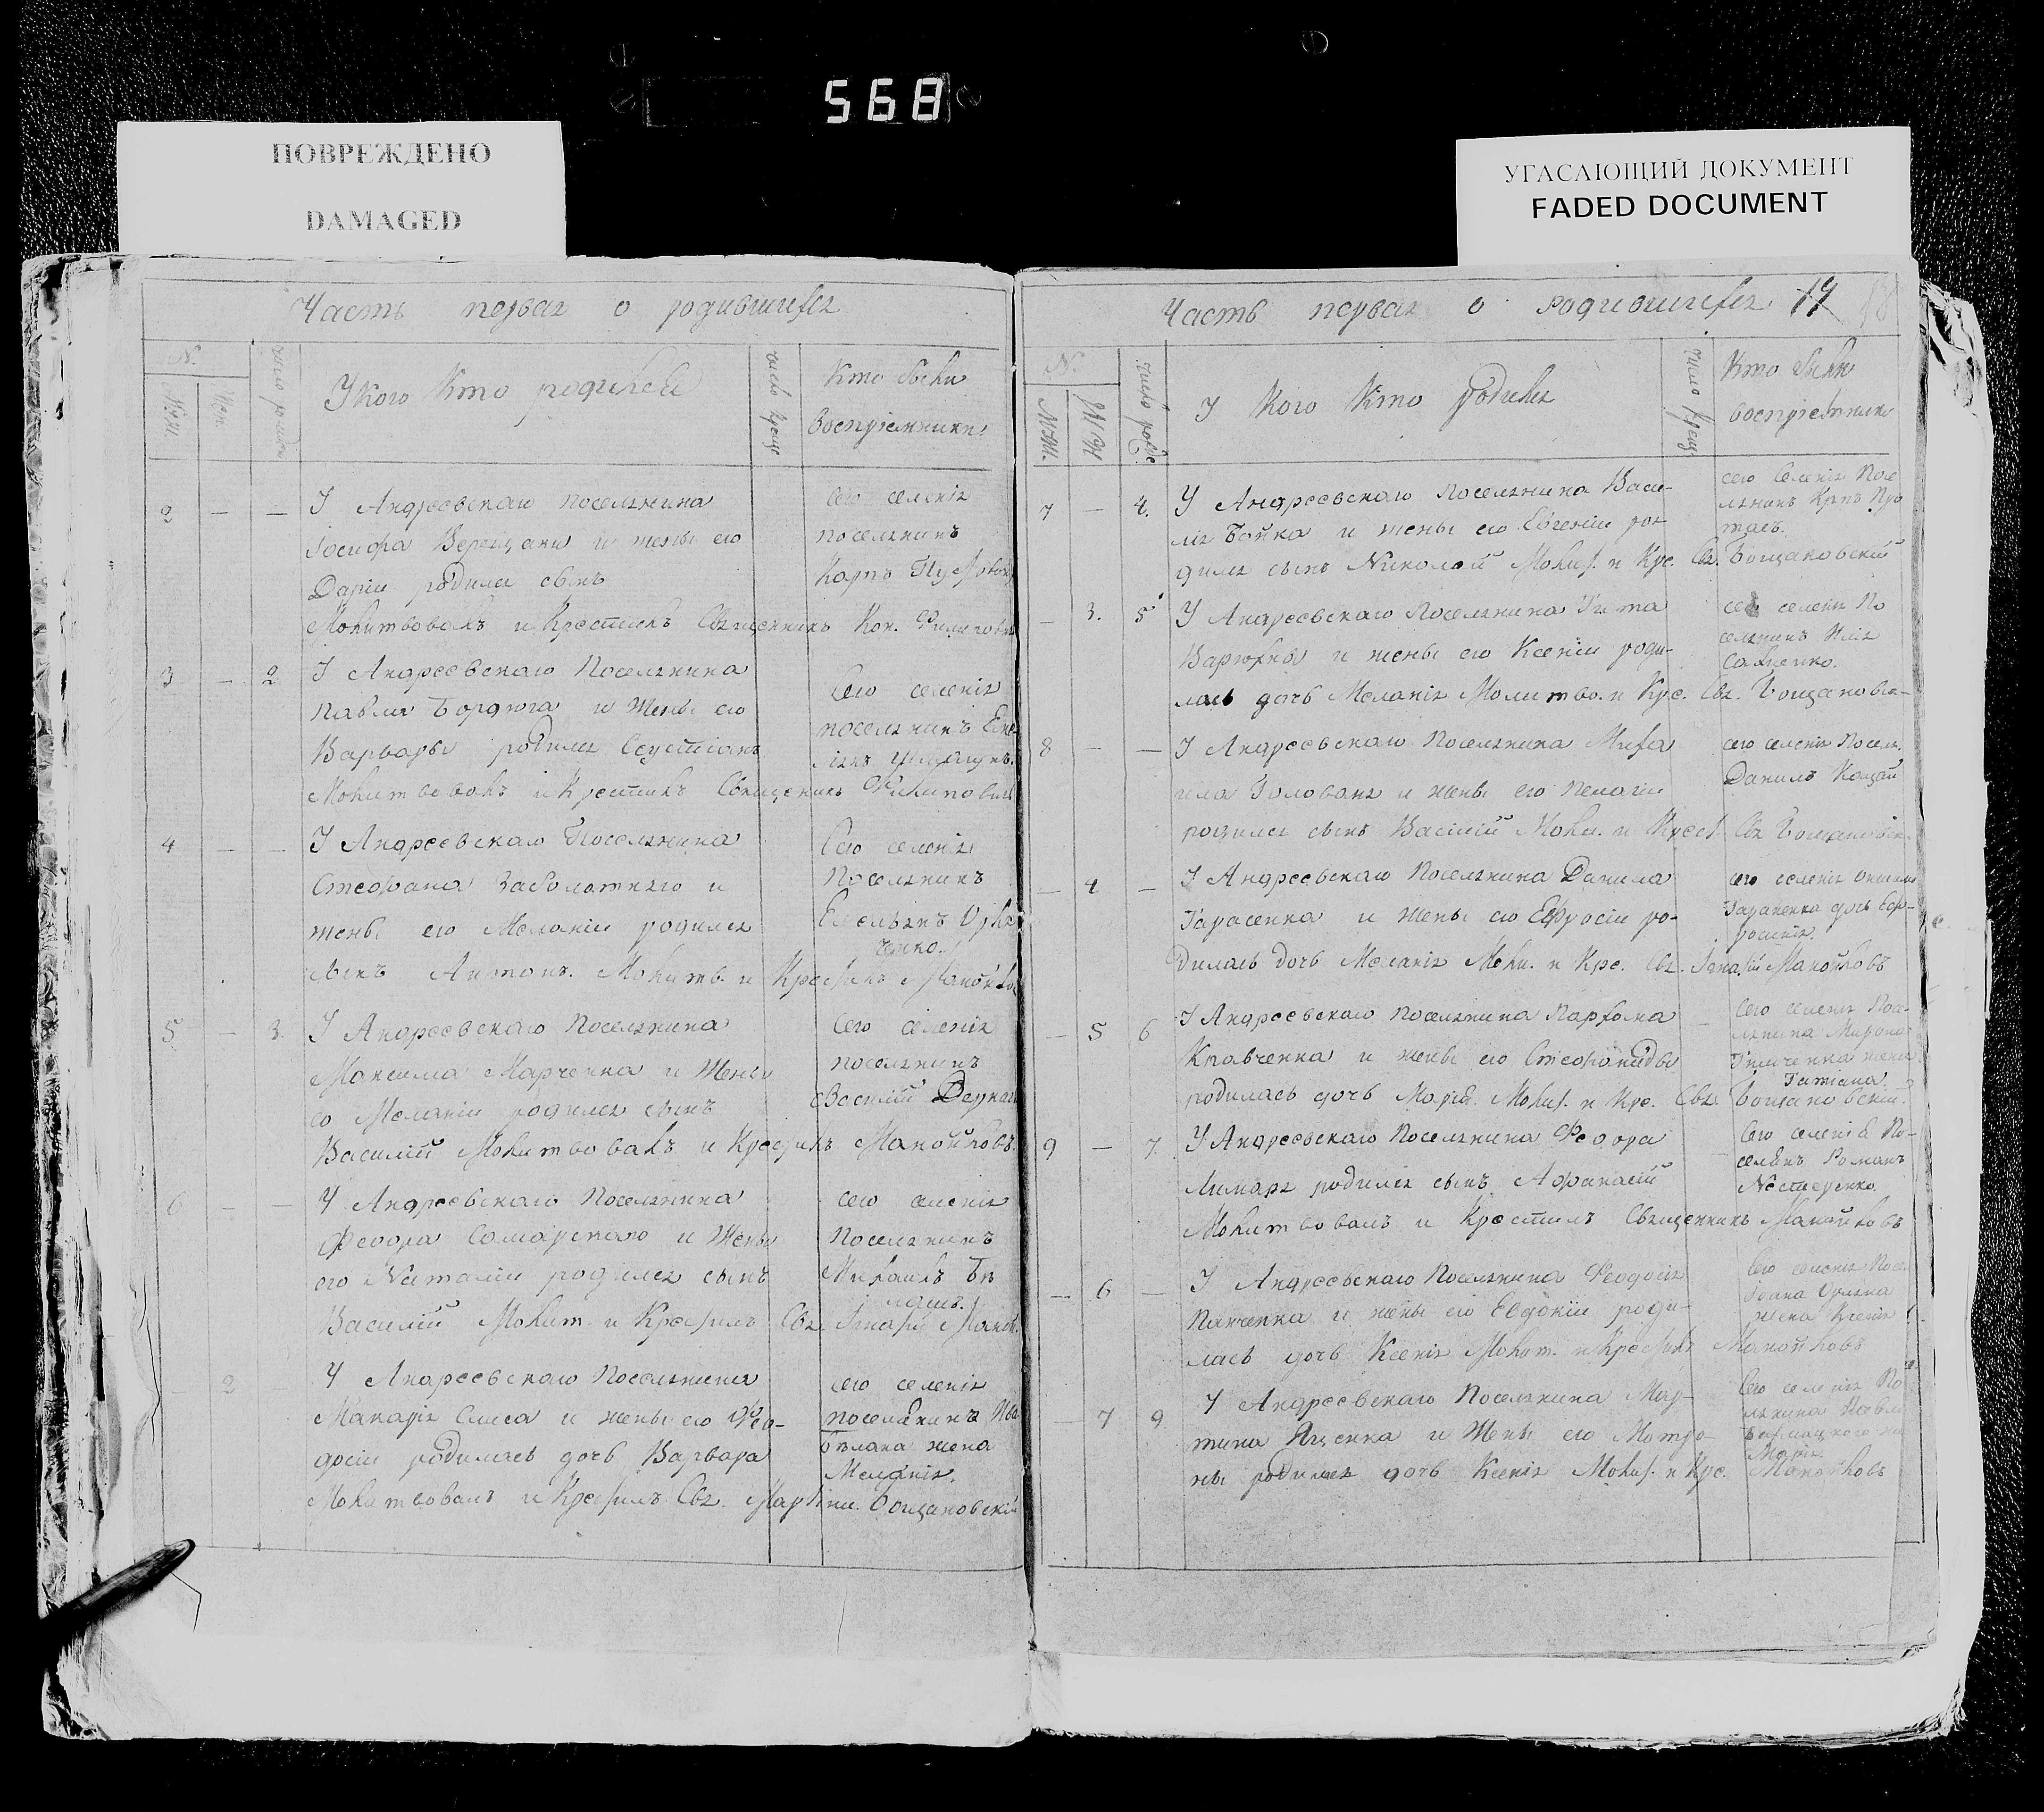 568
ПОВРЕЖДЕНО
DAMAGED
УГАСАЮЩИЙ ДОКУМЕНТ
FADED DOCUMENT
Часть первая о родившихся
N.
Муж.
Жен.
число рожден
У кого кто родился
число крещ
Кто были
восприемники
2 — — У Андреевскаго поселянина
Іосифа Верещаки и жены его
Даріи родился сынъ
Молитвовалъ и Крестилъ Священникъ Кон. Филипович
Сего селенія
поселянинъ
Карпъ
3 — 2 У Андреевскаго Поселянина
Павла Бордюга и Жены его
Варвары родился Сеустіанъ
Молитвовалъ и Крестилъ Священникъ Филипович
Сего селенія
поселянинъ
4 — — У Андреевскаго Поселянина
Стефана Заболотнего и
жены его Меланіи родился
сынъ Антонъ. Молитв. и Крестилъ Манойлов
Сего селенія
Поселянинъ
Емельянъ
5 — 3. У Андреевскаго Поселянина
Максима Марченка и Жены
его Меланіи родился сынъ
Василій Молитвовалъ и Крестилъ Манойловъ
Сего селенія
поселянинъ
Василій
6 — — У Андреевскаго Поселянина
Феодора Самарскаго и Жены
его Наталіи родился сынъ
Василій Молит. и Крестилъ Свя. Игнатій Маной.
сего селенія
Поселянинъ
Михаилъ
— 2 — У Андреевскаго Поселянина
Макарія Слиса и жены его Фео-
досіи родилась дочь Варвара
Молитвовалъ и Крестилъ Свя. Бощановскій
сего селенія
поселянина
жена
Меланія.
Часть первая о родившихся 17
N.
Муж.
Жен
число рожде
У Кого Кто родился
число крещ
Кто были
воспріемники
7 — 4. У Андреевскаго Поселянина Васи-
лія Бойка и жены его Евгеніи ро-
дился сынъ Николай Молит. и Кре. Свя. Бощановскій
сего Селенія Посе
лянинъ
— 3. 5 У Андреевскаго Поселянина Тита
Варюхны и жены его Ксеніи роди-
лась дочь Меланія Молитво. и Кре. Свя. Бощановск-
сего селенія По
селянинъ Илія
Савченко.
8 — — У Андреевскаго Поселянина Миха
ила Голована и жены его Пелагіи
родился сынъ Василій Моли. и Крест Свя Бощановск.
сего селенія Посел.
Данилъ
— 4 — У Андреевскаго Поселянина Данила
Тарасенка и жены его Ефросіи ро-
дилась дочь Меланія Моли. и Кре. Свя. Игнатій Манойловъ
сего селенія
дочь
— 5 6 У Андреевскаго Поселянина Пархома
Кравченка и жены его Стефаниды
родилась дочь Марія. Молит. и Кре. Свя. Бощановскій.
Сего селенія Посе-
лянина Мирона
жена
Татіана.
9 — 7. У Андреевскаго Поселянина Феодора
Лимаря родился сынъ Афанасій
Молитвовалъ и Крестилъ Священникъ Манойловъ
Сего селенія По-
селянъ Романъ
Нестеренко.
— 6 — У Андреевскаго Поселянина Феодосія
Панченка и жены его Евдокіи роди-
лась дочь Ксенія Молит. и Крестилъ Манойловъ
Сего селенія Посе.
Іоана
жена Ксенія
— 7 9 У Андреевскаго Поселянина Мар-
тина Яценка и Жены его Мотро-
ны родилась дочь Ксенія Молит. и Кре. Манойловъ
Сего селенія По
лянина Павла
Марія.